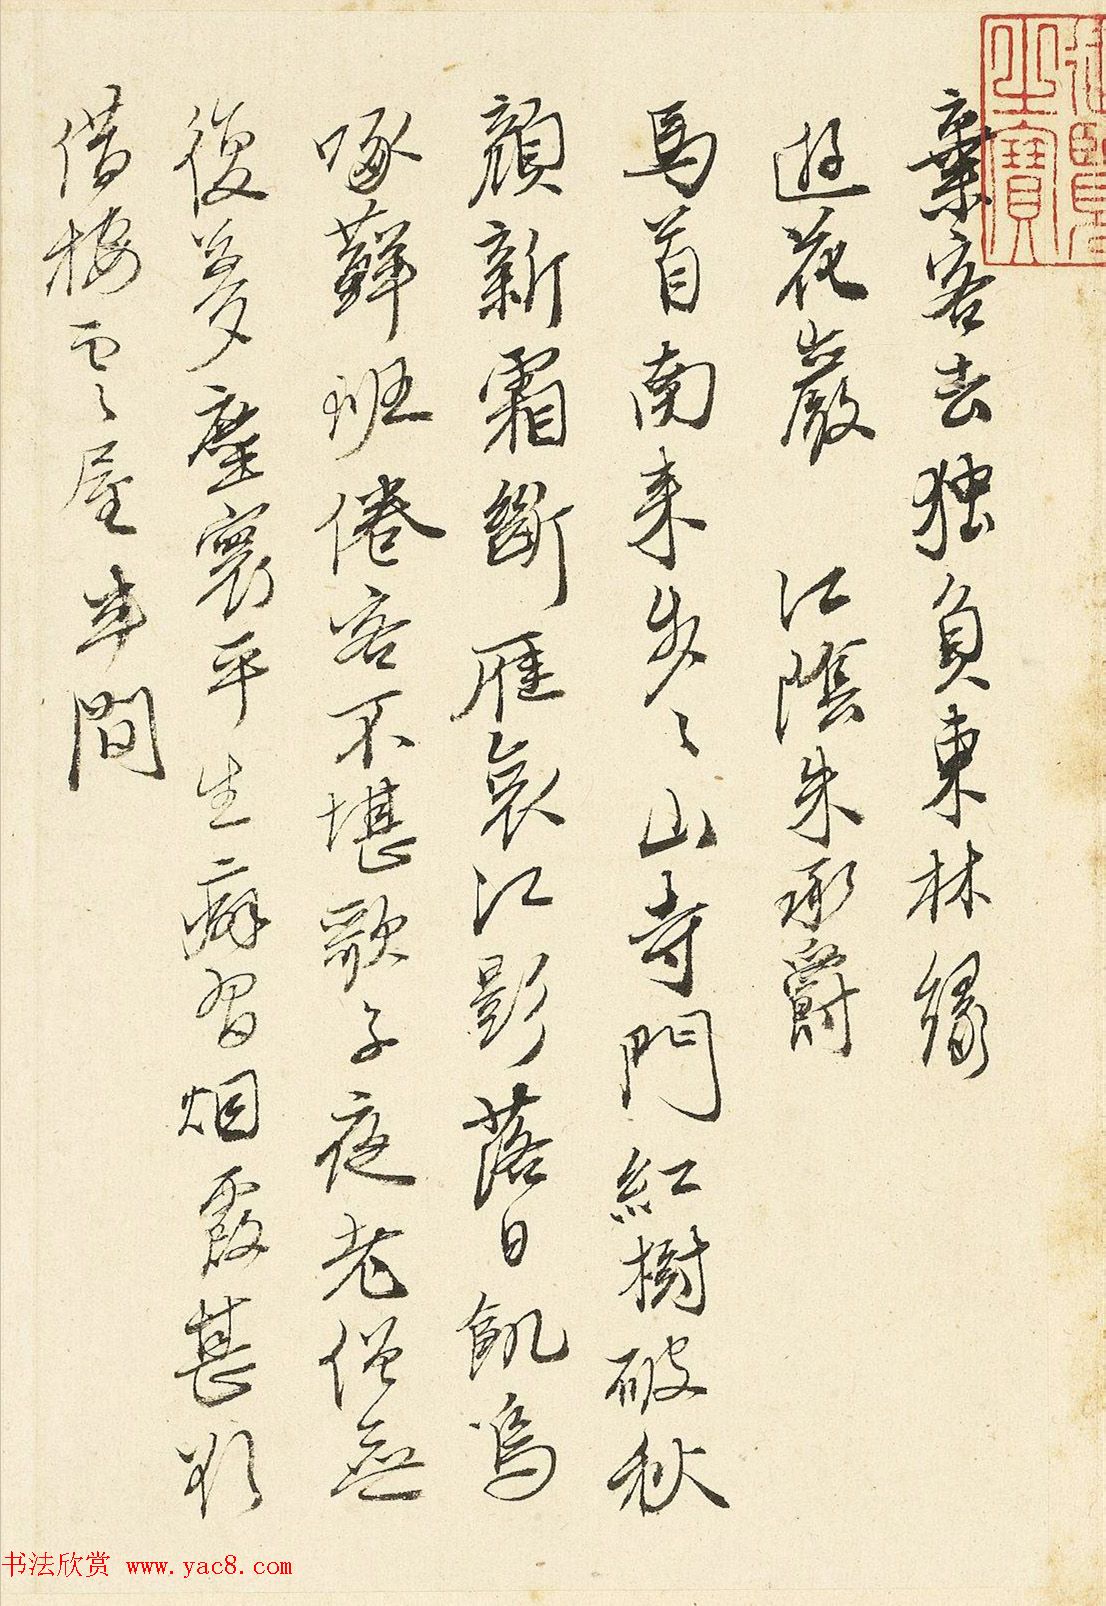 御覽之寶
棄客去独負東林緣
遊花巖 江陰朱承爵
馬首南来步々山寺門紅樹破秋
顏新霜斷雁哀江影落日飢烏
啄蘚班倦客不堪歌子夜老僧無
復夢塵寰平生癖習烟霞甚欲
借棲雲屋半間
书法欣赏 www.yac8.com